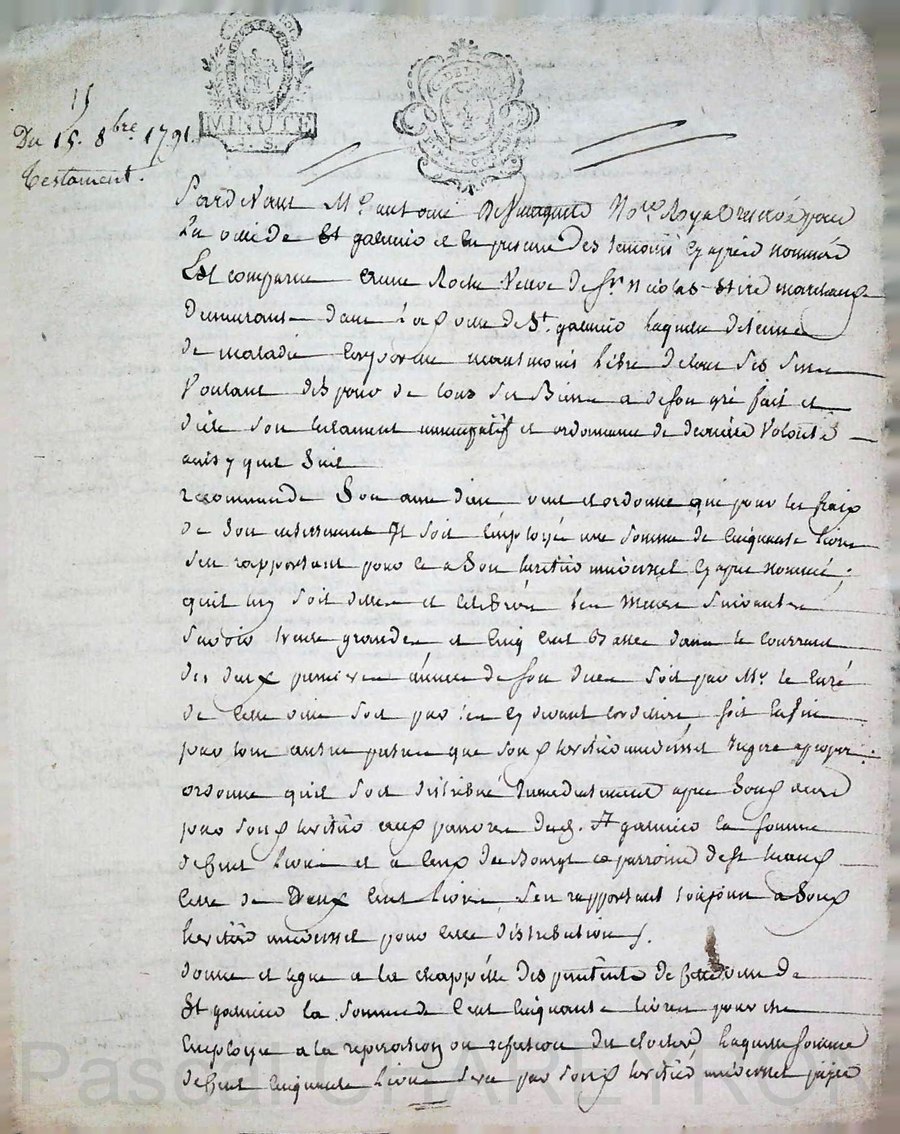 MINUTE
15
Du 15. 8bre 1791.
Testament.
Pardevant Me antoine Nore Royal reservé pour
La ville de St galmier et en presence Des temoins cy apres nommés
Est comparue Roche Veuve de Sr Nicolas marchand
Demeurant dans lad ville de St. galmier laquelle detenue
de maladie corporelle neantmoins libre de tous ses sens
Voulant disposer de tous ses Biens a de son gré fait et
dicté son testament nuncupatif et ordonnance de derniere Volonté
ainsy quil Suit
recommande Son ame a dieu veut et ordonne que pour les fraix
de Son enterrement Il soit Employé une somme de cinquante livres
s'en rapportant pour ce a Son heritier universel cy apres nommé;
quil soit dittes et celebrées les Messes Suivantes
Savoir trente grandes et cinq cent Basses dans le courrant
des deux premieres années de son deces soit par Mr le curé
de cette ville soit par les cy devant cordeliers, soit enfin
par tous autres pretres que sond heritier universel Jugera apropos:
ordonne quil soit distribué Immediatement apres Sond deces
par sond heritier aux pauvres dud. St galmier la somme
de Cent livres et a ceux du Bourg et parroisse de St
celle de Deux Cent livres, s'en rapportant toujours a Sond
heritier universel pour cette distribution.
donne et legue a la chappelle des penitents de cette ville de
St galmier la Somme de Cent Cinquante livres pour etre
Employée a la reparation ou refusion du clocher laquelle somme
de Cent cinquante livres sera par sond heritier universel payée
Pascal CHAREYRON